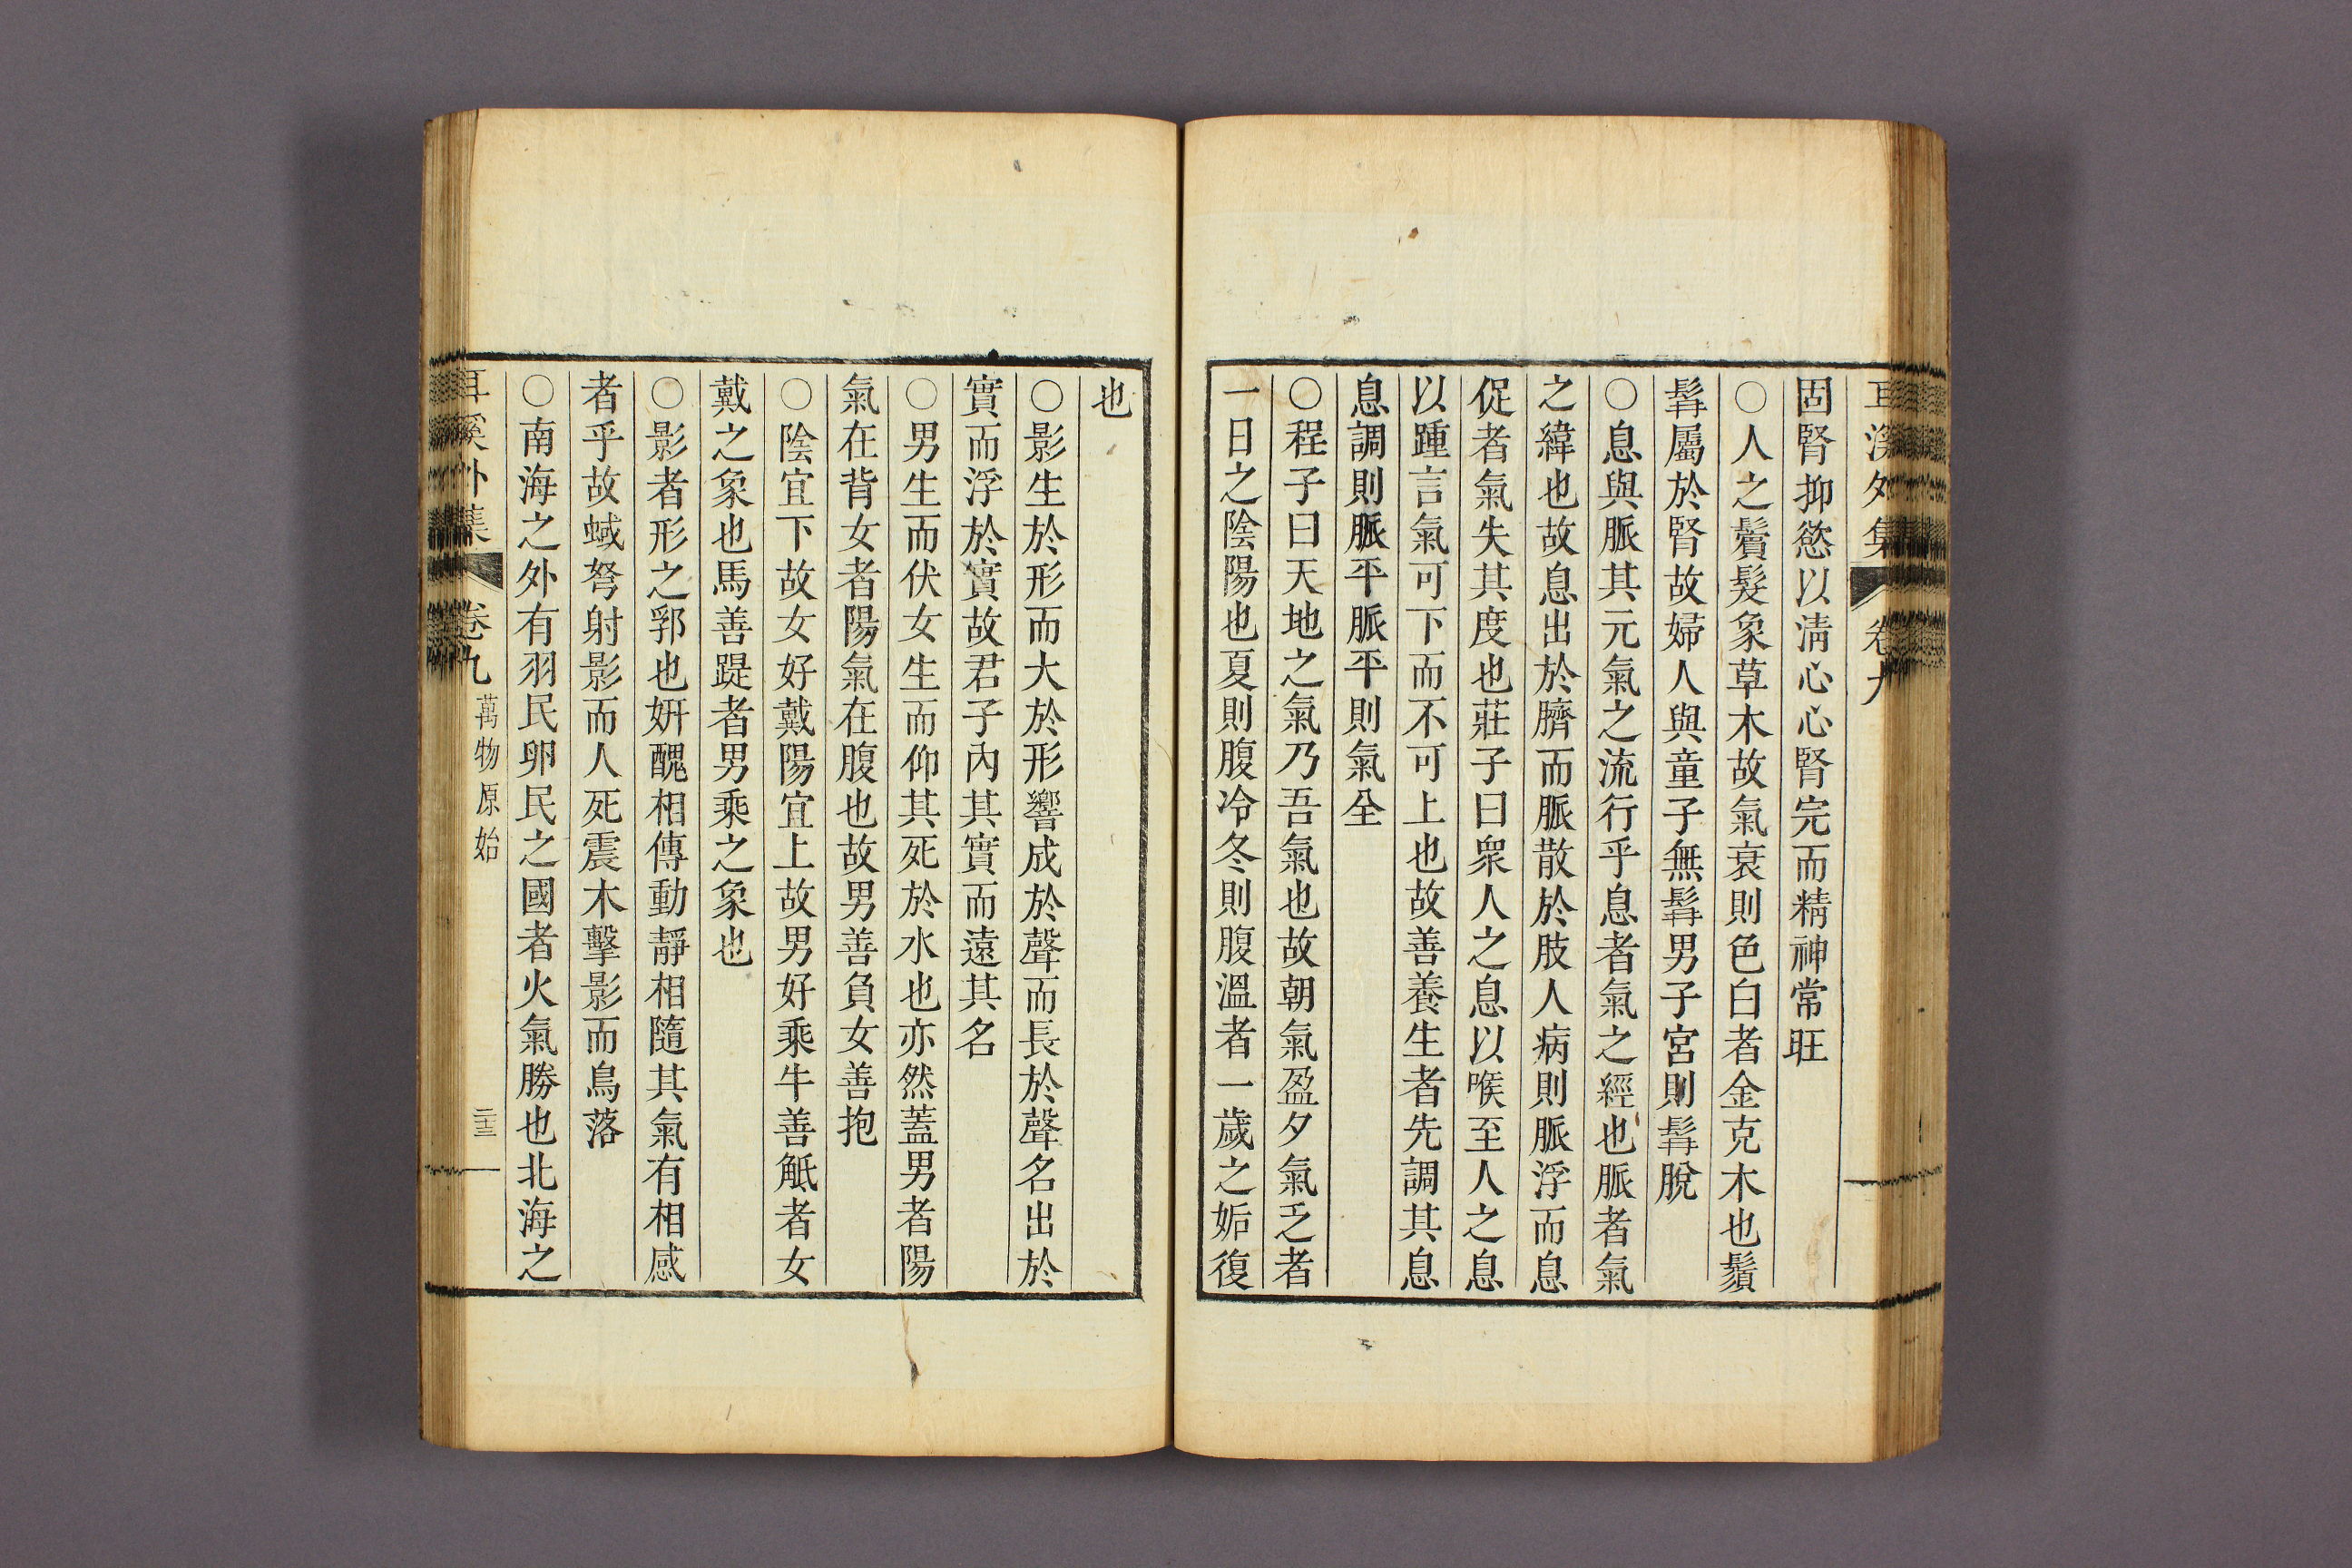 耳溪外集 卷九
固腎抑慾以清心心腎完而精神常旺
○人之鬢髮象草木故氣衰則色白者金克木也鬚
髯屬於腎故婦人與童子無髯男子宮則髯脫
○息與脈其元氣之流行乎息者氣之經也脈者氣
之緯也故息出於臍而脈散於肢人病則脈浮而息
促者氣失其度也莊子曰衆人之息以喉至人之息
以踵言氣可下而不可上也故善養生者先調其息
息調則脈平脈平則氣全
○程子曰天地之氣乃吾氣也故朝氣盈夕氣乏者
一日之陰陽也夏則腹冷冬則腹溫者一歲之姤復
也
○影生於形而大於形響成於聲而長於聲名出於
實而浮於實故君子內其實而遠其名
○男生而伏女生而仰其死於水也亦然蓋男者陽
氣在背女者陽氣在腹也故男善負女善抱
○陰宜下故女好戴陽宜上故男好乘牛善觝者女
戴之象也馬善踶者男乘之象也
○影者形之郛也姸醜相傳動靜相隨其氣有相感
者乎故蜮弩射影而人死震木擊影而鳥落
○南海之外有羽民卵民之國者火氣勝也北海之
耳溪外集 卷九 萬物原始 二十三